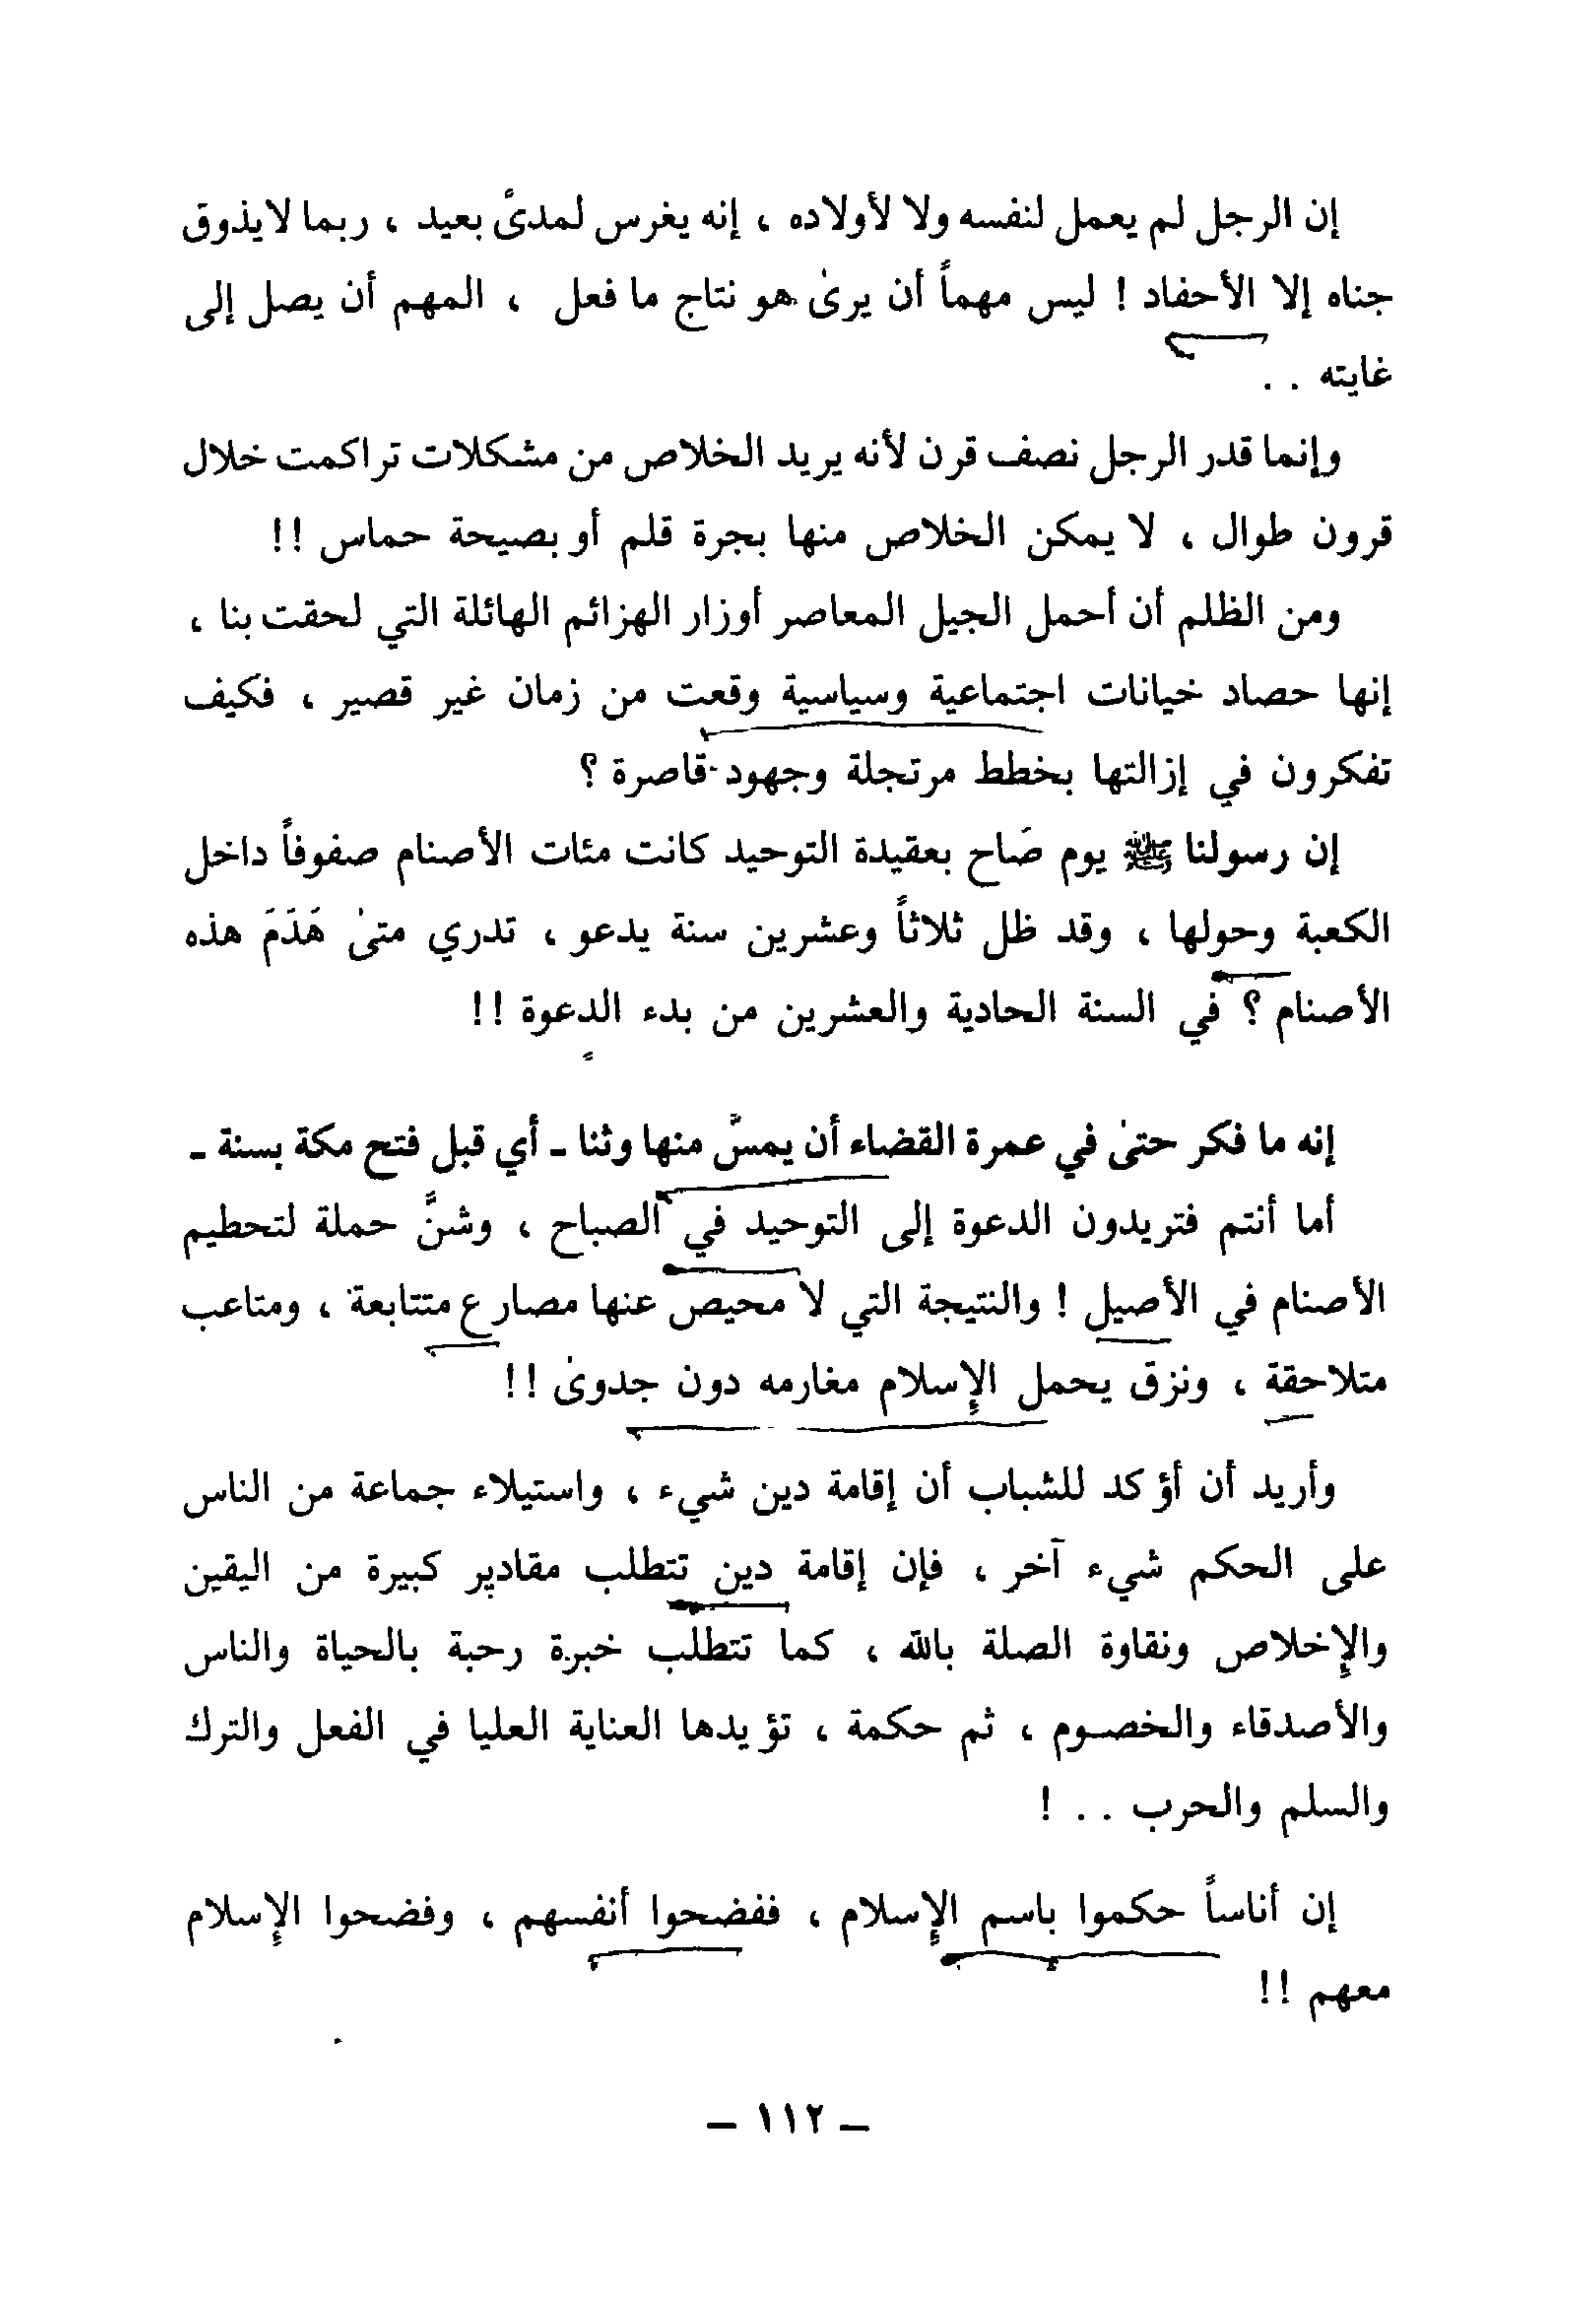 إن الرجل لم يعمل لنفسه ولا لأولاده ، إنه يغرس لمدىً بعيد ، ربما لايذوق
جناه إلا الأحفاد ! ليس مهماً أن يرىٰ هو نتاج ما فعل ، المهم أن يصل إلى
غايته . .
وإنما قدر الرجل نصف قرن لأنه يريد الخلاص من مشكلات تراكمت خلال
قرون طوال ، لا يمكن الخلاص منها بجرة قلم أو بصيحة حماس !!
ومن الظلم أن أحمل الجيل المعاصر أوزار الهزائم الهائلة التي لحقت بنا ،
إنها حصاد خيانات اجتماعية وسياسية وقعت من زمان غير قصير ، فكيف
تفكرون في إزالتها بخطط مرتجلة وجهود قاصرة ؟
إن رسولنا ﷺ يوم صَاح بعقيدة التوحيد كانت مئات الأصنام صفوفاً داخل
الكعبة وحولها ، وقد ظل ثلاثاً وعشرين سنة يدعو ، تدري متىٰ هَدَمَ هذه
الأصنام ؟ في السنة الحادية والعشرين من بدء الدعوة !!
إنه ما فكر حتىٰ في عمرة القضاء أن يمسَّ منها وثنا ـ أي قبل فتح مكة بسنة ـ
أما أنتم فتريدون الدعوة إلى التوحيد في الصباح ، وشنَّ حملة لتحطيم
الأصنام في الأصيل ! والنتيجة التي لا محيص عنها مصارع متتابعة ، ومتاعب
متلاحقة ، ونزق يحمل الإسلام مغارمه دون جدوىٰ !!
وأريد أن أؤكد للشباب أن إقامة دين شيء ، واستيلاء جماعة من الناس
على الحكم شيء آخر ، فإن إقامة دين تتطلب مقادير كبيرة من اليقين
والإخلاص ونقاوة الصلة بالله ، كما تتطلب خبرة رحبة بالحياة والناس
والأصدقاء والخصوم ، ثم حكمة ، تؤيدها العناية العليا في الفعل والترك
والسلم والحرب . . !
إن أناساً حكموا باسم الإسلام ، ففضحوا أنفسهم ، وفضحوا الإسلام
معهم !!
– ١١٢ –